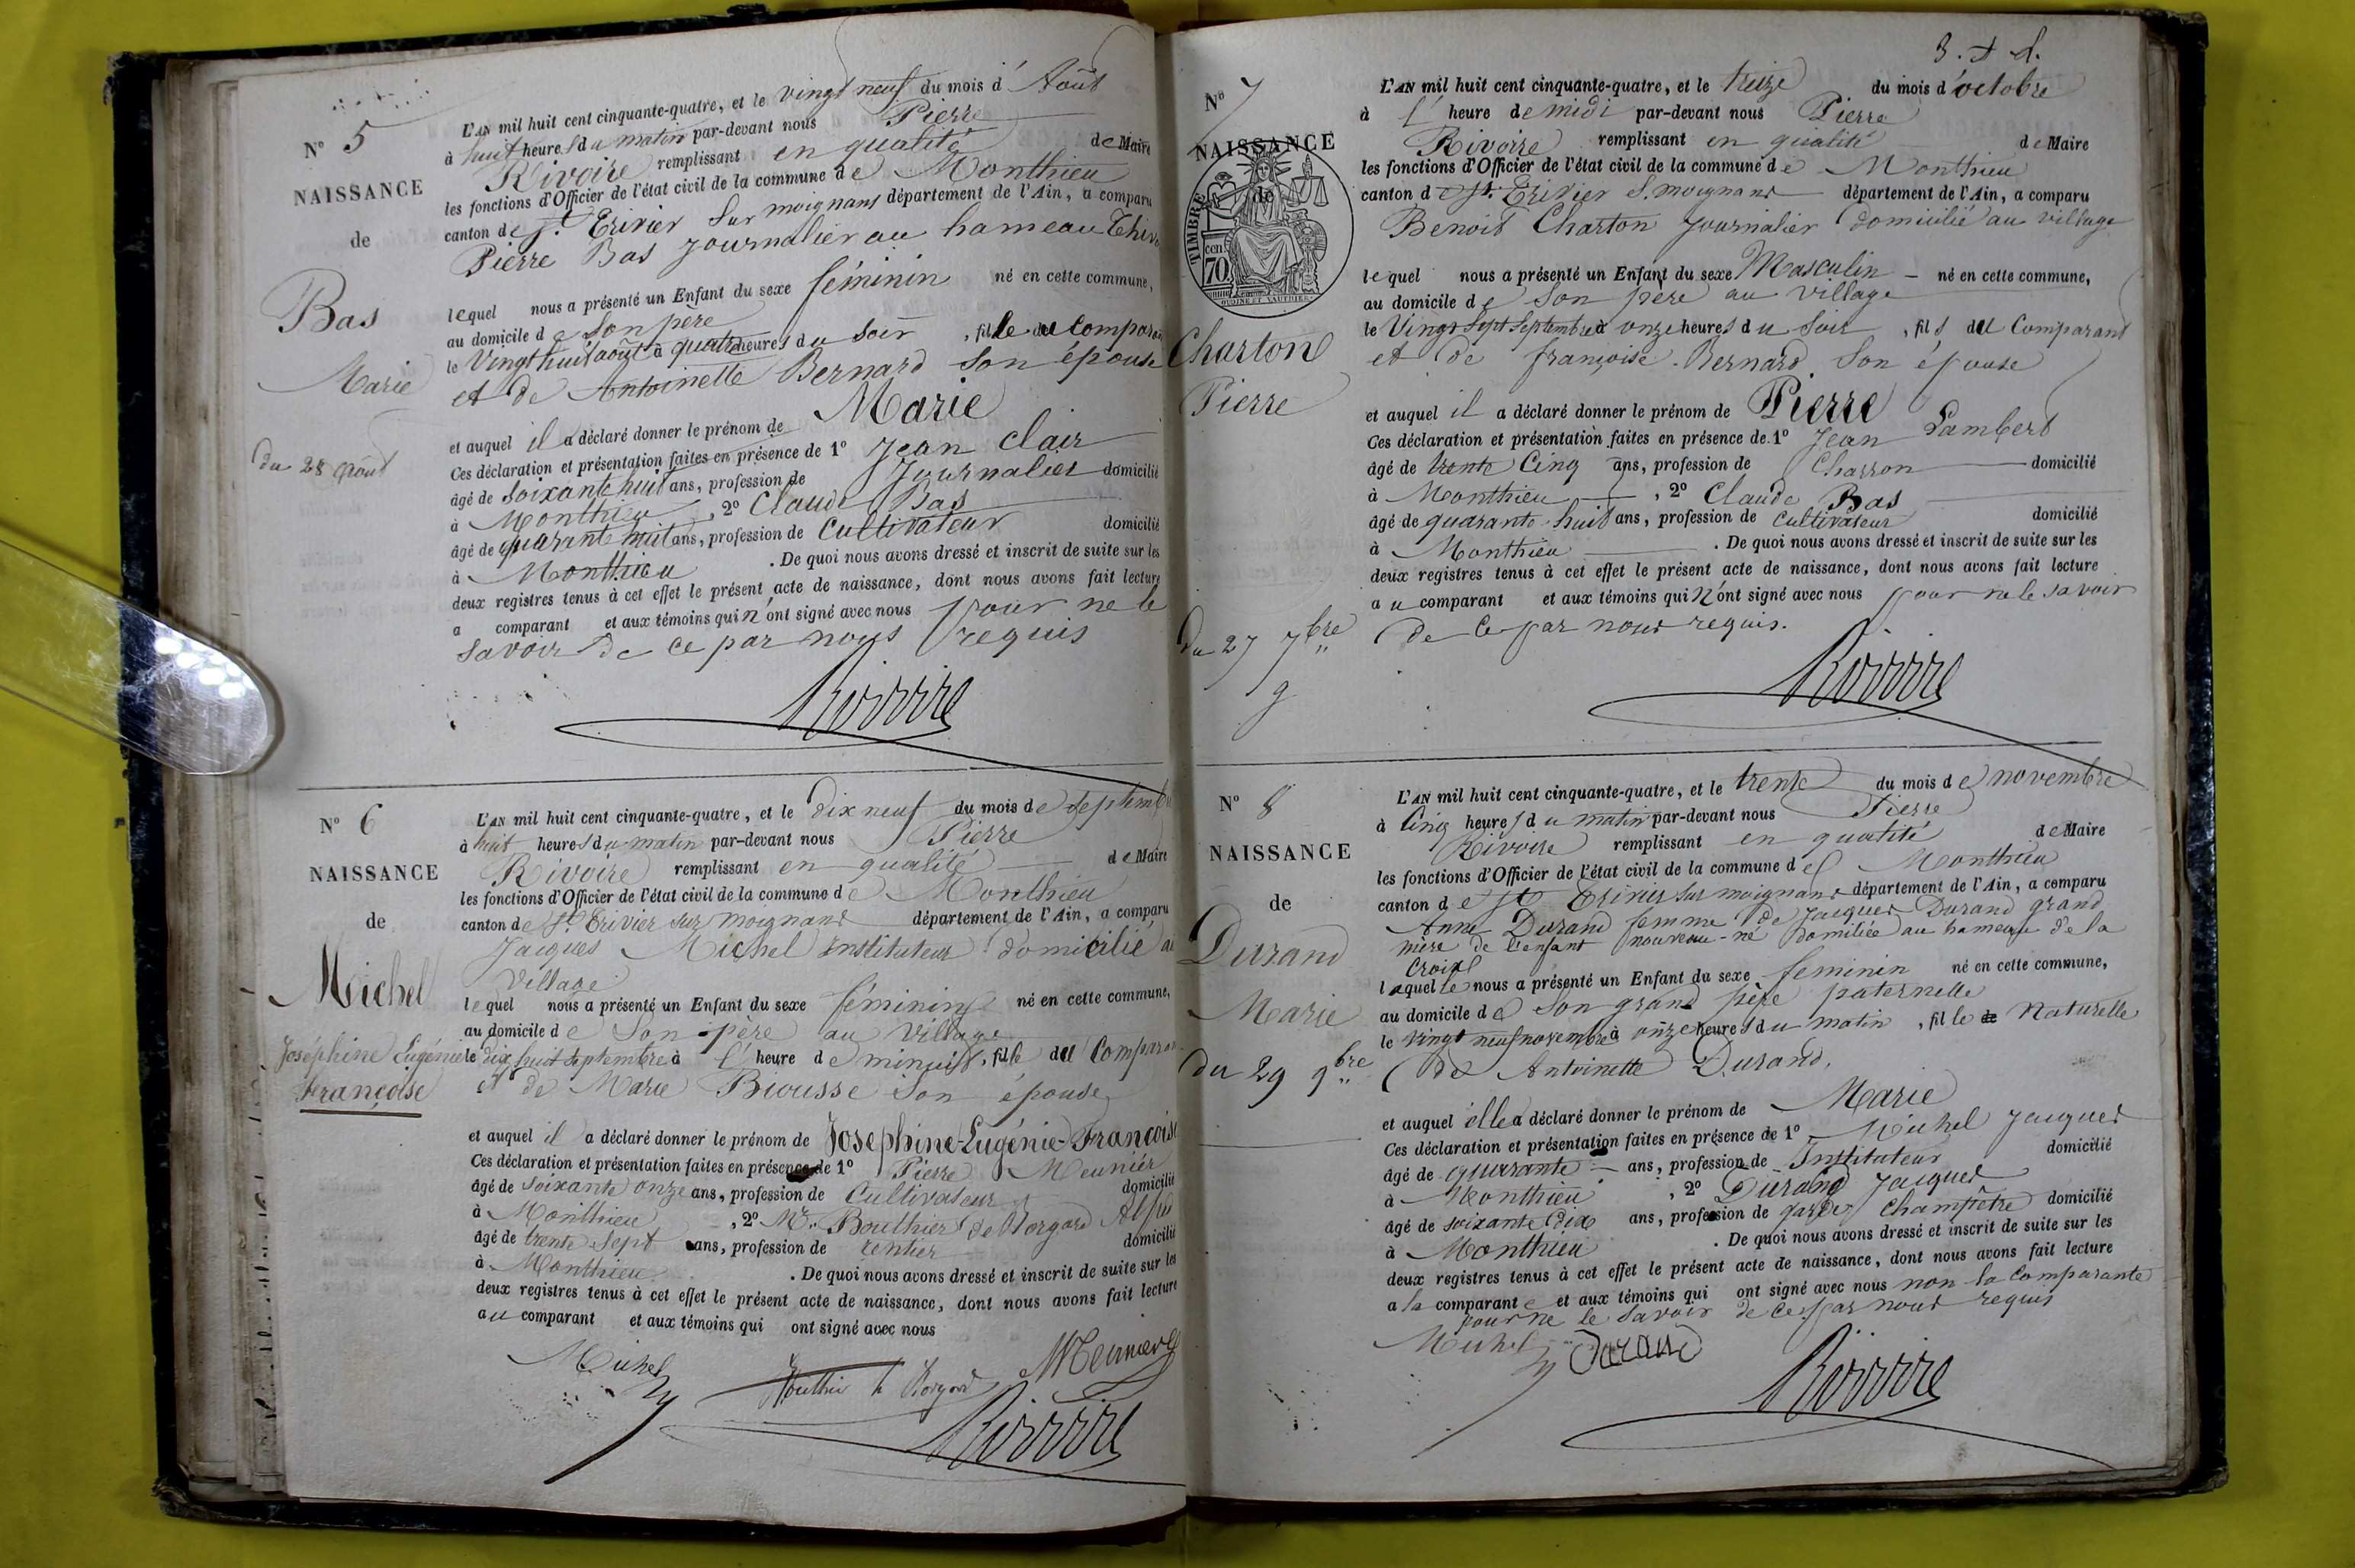 N° 5
NAISSANCE
de
Bas
Marie
du 28 août
L'AN mil huit cent cinquante-quatre, et le vingt neuf du mois d'Août
à huit heures du matin par-devant nous Pierre
Rivoire remplissant en qualité de Maire
les fonctions d'Officier de l'état civil de la commune de Monthieu
canton de St. Trivier sur moignans département de l'Ain, a comparu
Pierre Bas journalier au hameau
lequel nous a présenté un Enfant du sexe féminin né en cette commune,
au domicile de son père
le Vingt huit août à quatre heures du soir, fille du Comparant
et de Antoinette Bernard son épouse
et auquel il a déclaré donner le prénom de Marie
Ces déclaration et présentation faites en présence de 1° Jean Clair
âgé de soixante huit ans, profession de Journalier domicilié
à Monthieu, 2° Claude Bas
âgé de quarante huit ans, profession de Cultivateur domicilié
à Monthieu. De quoi nous avons dressé et inscrit de suite sur les
deux registres tenus à cet effet le présent acte de naissance, dont nous avons fait lecture
a comparant et aux témoins qui n'ont signé avec nous pour ne le
savoir de ce par nous requis
Rivoire
N° 6
NAISSANCE
de
Michel
Joséphine Eugénie
Françoise
L'AN mil huit cent cinquante-quatre, et le dix neuf du mois de septembre
à huit heures du matin par-devant nous Pierre
Rivoire remplissant en qualité de Maire
les fonctions d'Officier de l'état civil de la commune de Monthieu
canton de St. Trivier sur moignans département de l'Ain, a comparu
Jacques Michel instituteur domicilié au
Village
lequel nous a présenté un Enfant du sexe féminin né en cette commune,
au domicile de son père au village
le dix huit septembre à l'heure de minuit, fille du Comparant
et de Marie Brousse son épouse
et auquel il a déclaré donner le prénom de Josephine-Eugénie-Françoise
Ces déclaration et présentation faites en présence de 1° Pierre Meunier
âgé de soixante onze ans, profession de Cultivateur domicilié
à Monthieu, 2° Mr. Bouthier de Borgard
âgé de trente sept ans, profession de rentier domicilié
à Monthieu. De quoi nous avons dressé et inscrit de suite sur les
deux registres tenus à cet effet le présent acte de naissance, dont nous avons fait lecture
au comparant et aux témoins qui ont signé avec nous
Michel Bouthier de Borgard Meunier
Rivoire
N° 7
NAISSANCE
de
TIMBRE
70 cen.
Charton
Pierre
du 27 7bre
L'AN mil huit cent cinquante-quatre, et le treize du mois d'octobre
à l'heure de midi par-devant nous Pierre
Rivoire remplissant en qualité de Maire
les fonctions d'Officier de l'état civil de la commune de Monthieu
canton de St. Trivier S. moignans département de l'Ain, a comparu
Benoit Charton Journalier domicilié au village
lequel nous a présenté un Enfant du sexe Masculin né en cette commune,
au domicile de son père au village
le Vingt Sept Septembre à onze heures du soir, fils du Comparant
et de françoise Bernard son épouse
et auquel il a déclaré donner le prénom de Pierre
Ces déclaration et présentation faites en présence de 1° Jean Lambert
âgé de trente Cinq ans, profession de Charron domicilié
à Monthieu, 2° Claude Bas
âgé de quarante-huit ans, profession de Cultivateur domicilié
à Monthieu. De quoi nous avons dressé et inscrit de suite sur les
deux registres tenus à cet effet le présent acte de naissance, dont nous avons fait lecture
au comparant et aux témoins qui n'ont signé avec nous pour ne le savoir
de Ce par nous requis.
Rivoire
N° 8
NAISSANCE
de
Durand
Marie
du 29 9bre
L'AN mil huit cent cinquante-quatre, et le trente du mois de novembre
à Cinq heures du matin par-devant nous Pierre
Rivoire remplissant en qualité de Maire
les fonctions d'Officier de l'état civil de la commune de Monthieu
canton de St Trivier sur moignans département de l'Ain, a comparu
Anne Durand femme de Jacques Durand grand
mère de l'enfant nouveau-né domiliée au hameau de la
Croix
laquelle nous a présenté un Enfant du sexe feminin né en cette commune,
au domicile de son grand père paternelle
le vingt neuf novembre à onze heures du matin, fille Naturelle
de Antoinette Durand,
et auquel elle a déclaré donner le prénom de Marie
Ces déclaration et présentation faites en présence de 1° Michel Jacques
âgé de quarante ans, profession de Instituteur domicilié
à Monthieu, 2° Durand Jacques
âgé de soixante dix ans, profession de garde Champêtre domicilié
à Monthieu. De quoi nous avons dressé et inscrit de suite sur les
deux registres tenus à cet effet le présent acte de naissance, dont nous avons fait lecture
a la comparante et aux témoins qui ont signé avec nous non la Comparante
pour ne le savoir de Ce par nous requis
Michel Durand
Rivoire